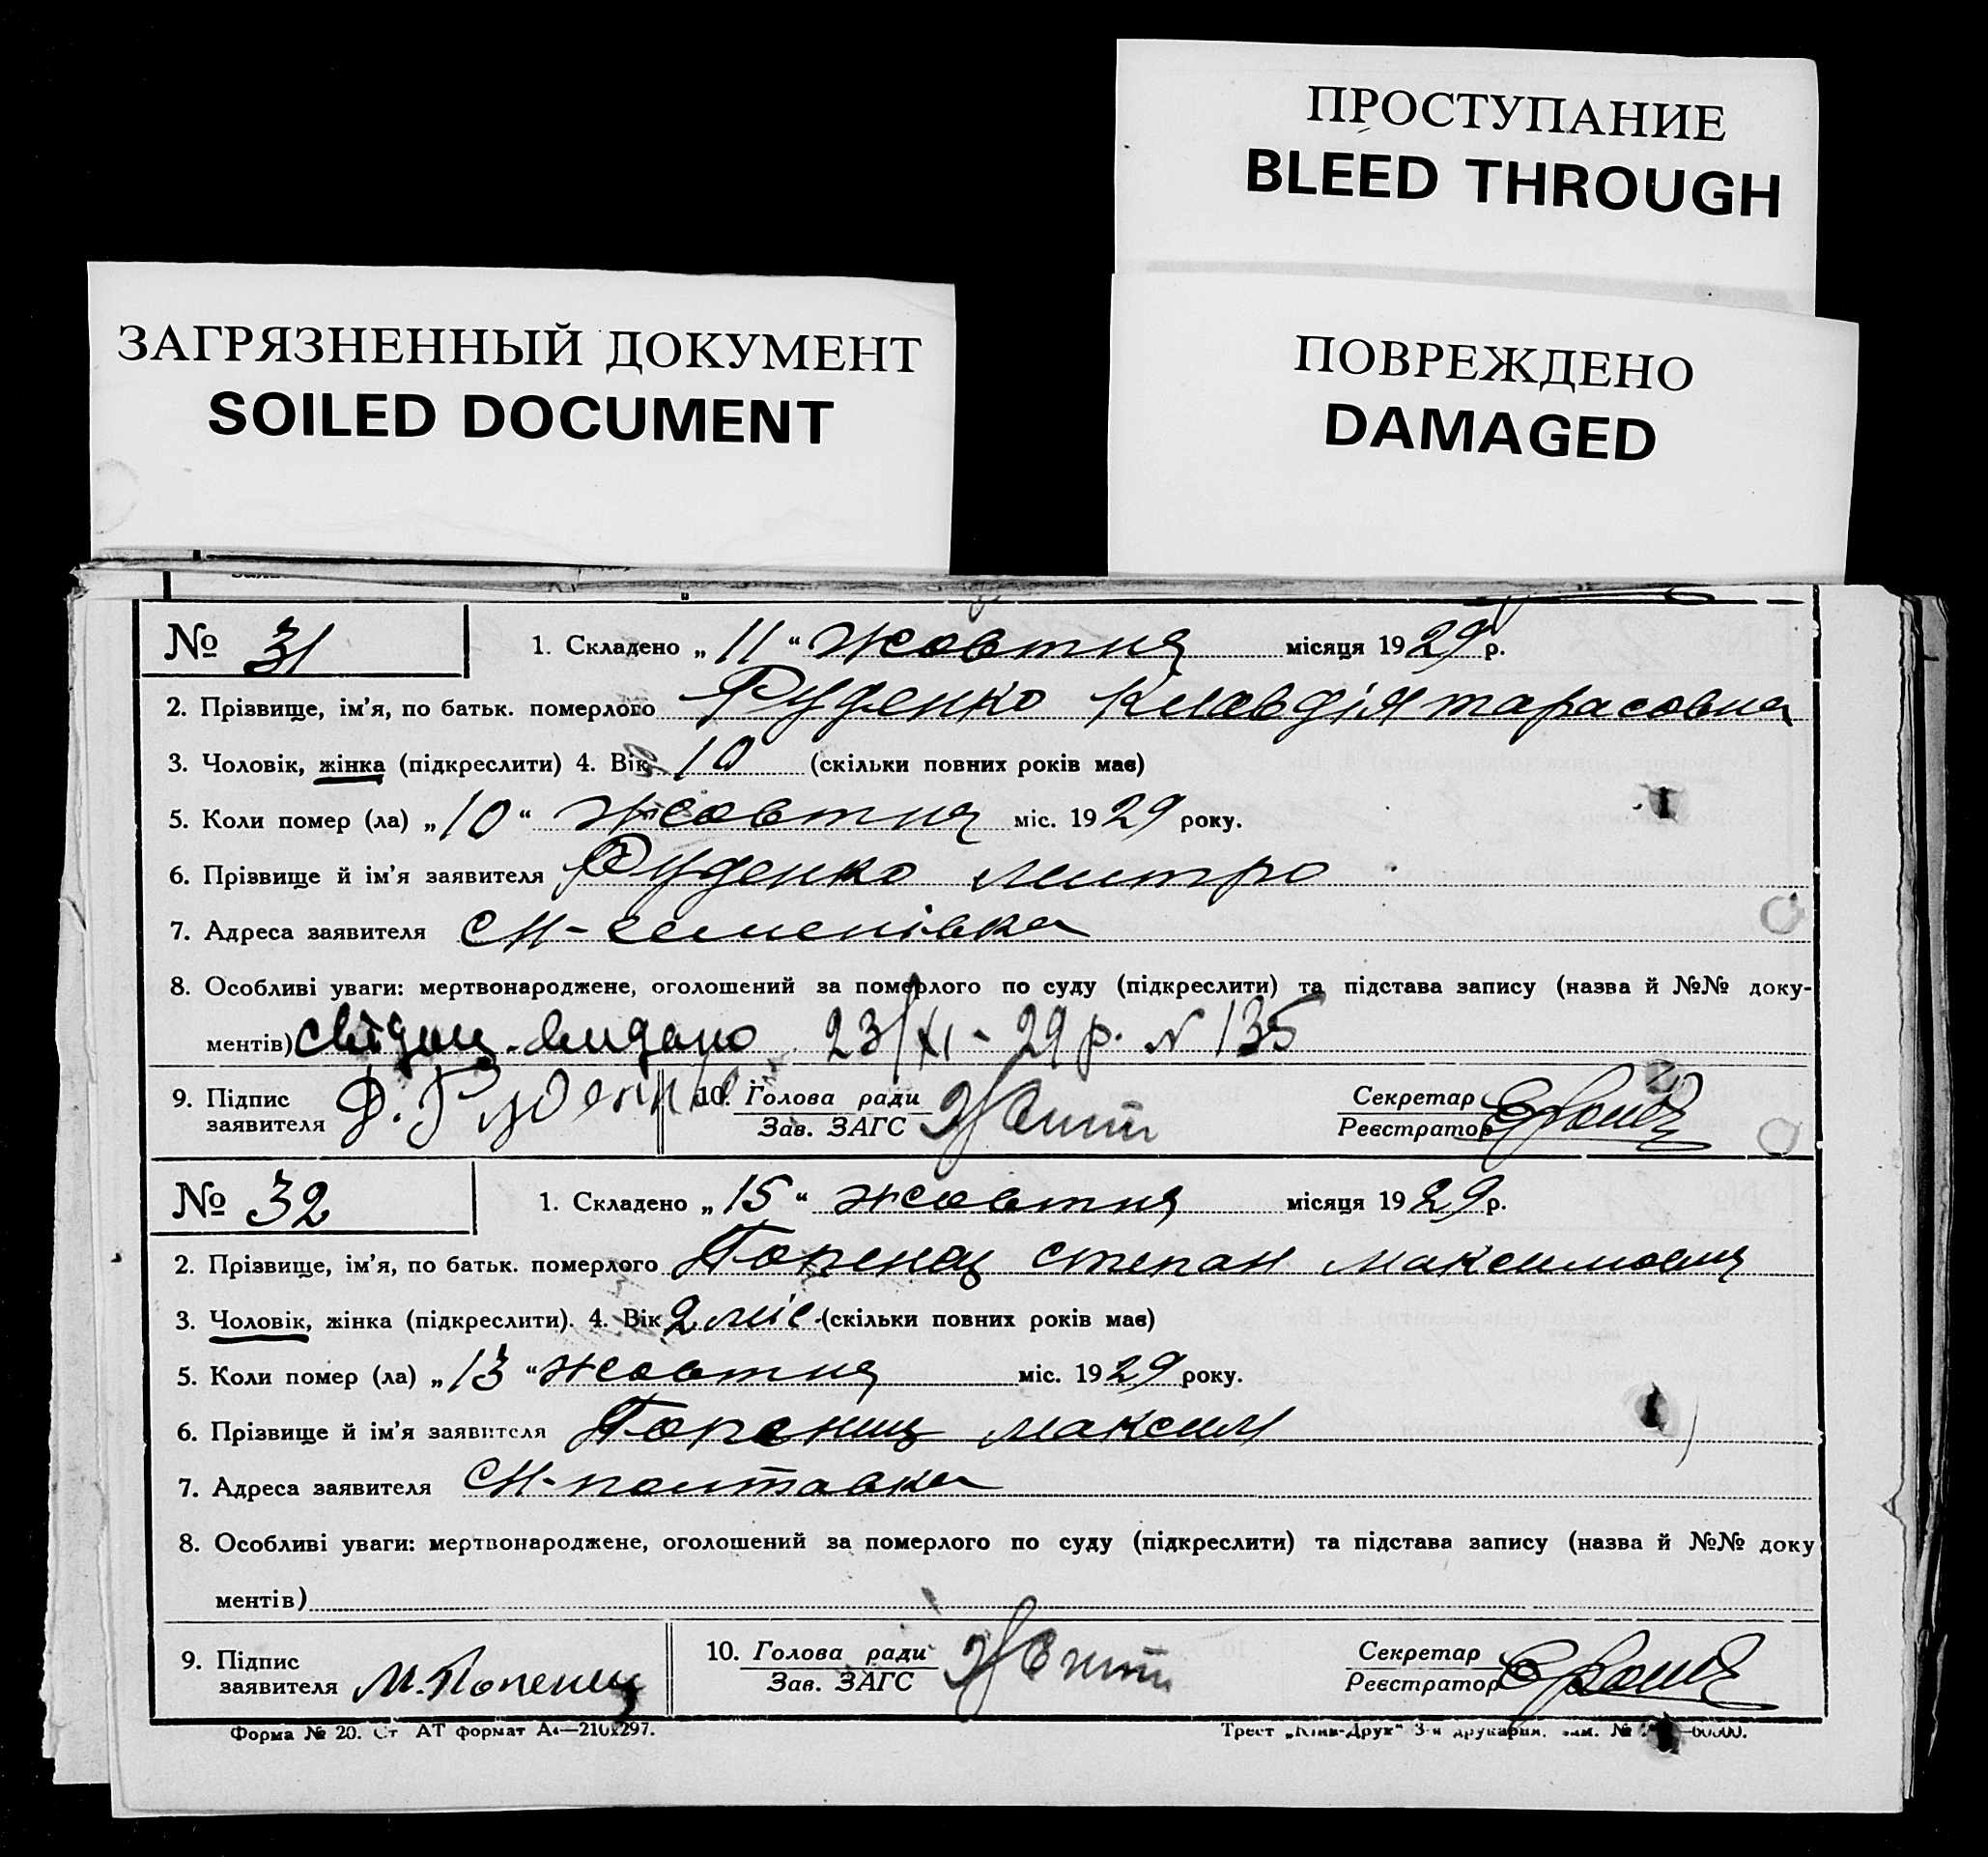 ПРОСТУПАНИЕ
BLEED THROUGH
ЗАГРЯЗНЕННЫЙ ДОКУМЕНТ
SOILED DOCUMENT
ПОВРЕЖДЕНО
DAMAGED
№ 31 1. Складено „ 11 “ жовтня місяця 1929 р.
2. Прізвище, ім'я, по батьк. померлого Руденко Клавдія тарасовна
3. Чоловік, жінка (підкреслити) 4. Вік 10 (скільки повних років має)
5. Коли помер (ла) „ 10 “ жовтня міс. 1929 року.
6. Прізвище й ім'я заявителя Руденко
7. Адреса заявителя СМ-семенівка
8. Особливі уваги: мертвонароджене, оголошений за померлого по суду (підкреслити) та підстава запису (назва й №№ доку-
ментів) свідоц. видано 23/XI - 29 р. N 135
9. Підпис заявителя Д. Руденко 10. Голова ради Зав. ЗАГС Секретар Реєстратор
№ 32 1. Складено „ 15 “ жовтня місяця 1929 р.
2. Прізвище, ім'я, по батьк. померлого степан максимович
3. Чоловік, жінка (підкреслити). 4. Вік 2 міс. (скільки повних років має)
5. Коли помер (ла) „ 13 “ жовтня міс. 1929 року.
6. Прізвище й ім'я заявителя максим
7. Адреса заявителя СМ-полтавка
8. Особливі уваги: мертвонароджене, оголошений за померлого по суду (підкреслити) та підстава запису (назва й №№ доку
ментів)
9. Підпис заявителя М. 10. Голова ради Зав. ЗАГС Секретар Реєстратор
Форма № 20. Ст АТ формат А4—210х297. Трест „Київ-Друк“ 3-я друкарня, зам. №